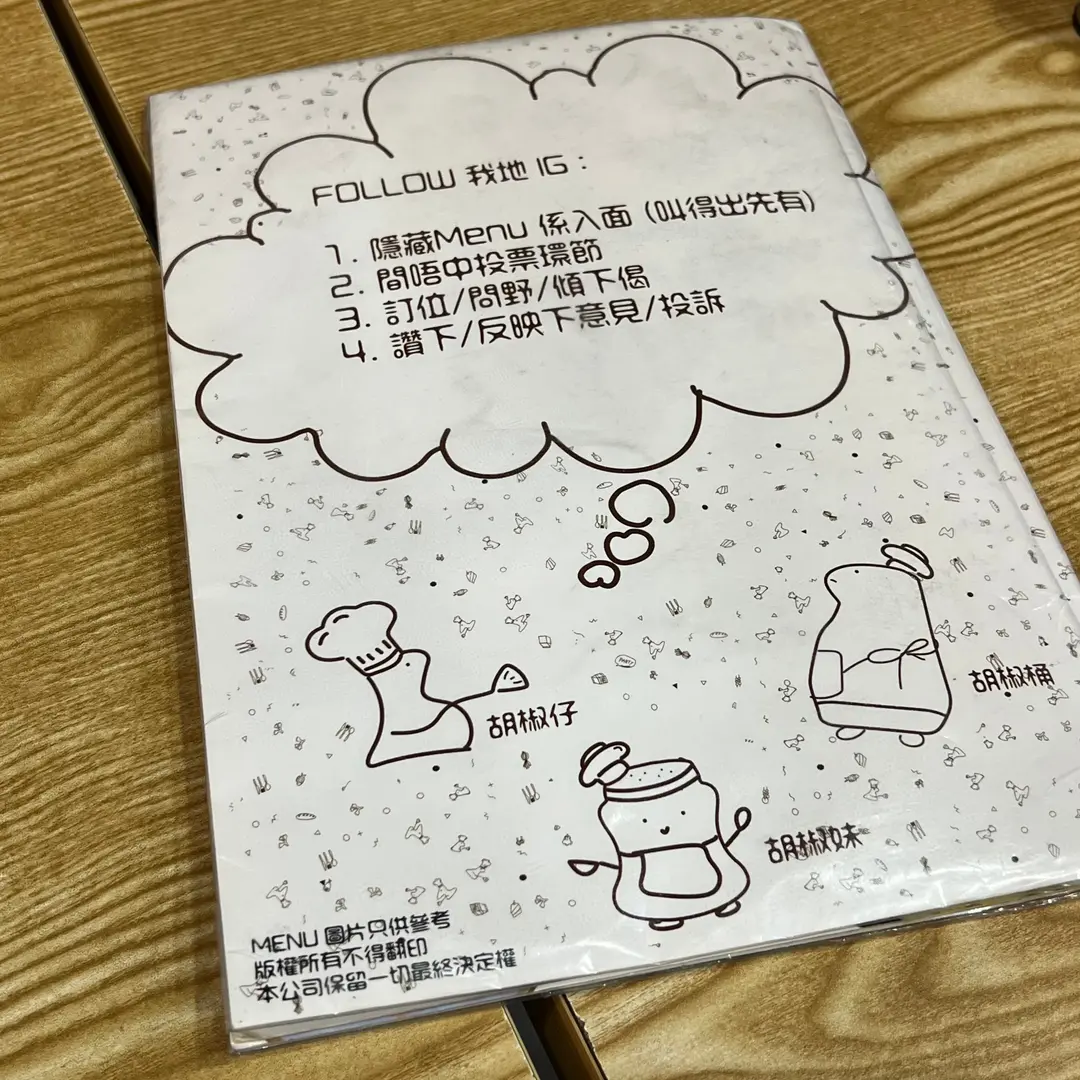 FOLLOW 我地 IG：
1. 隱藏Menu 係入面 (叫得出先有)
2. 間唔中投票環節
3. 訂位/問野/傾下偈
4. 讚下/反映下意見/投訴
胡椒仔
胡椒桶
胡椒妹
MENU 圖片只供參考
版權所有不得翻印
本公司保留一切最終決定權